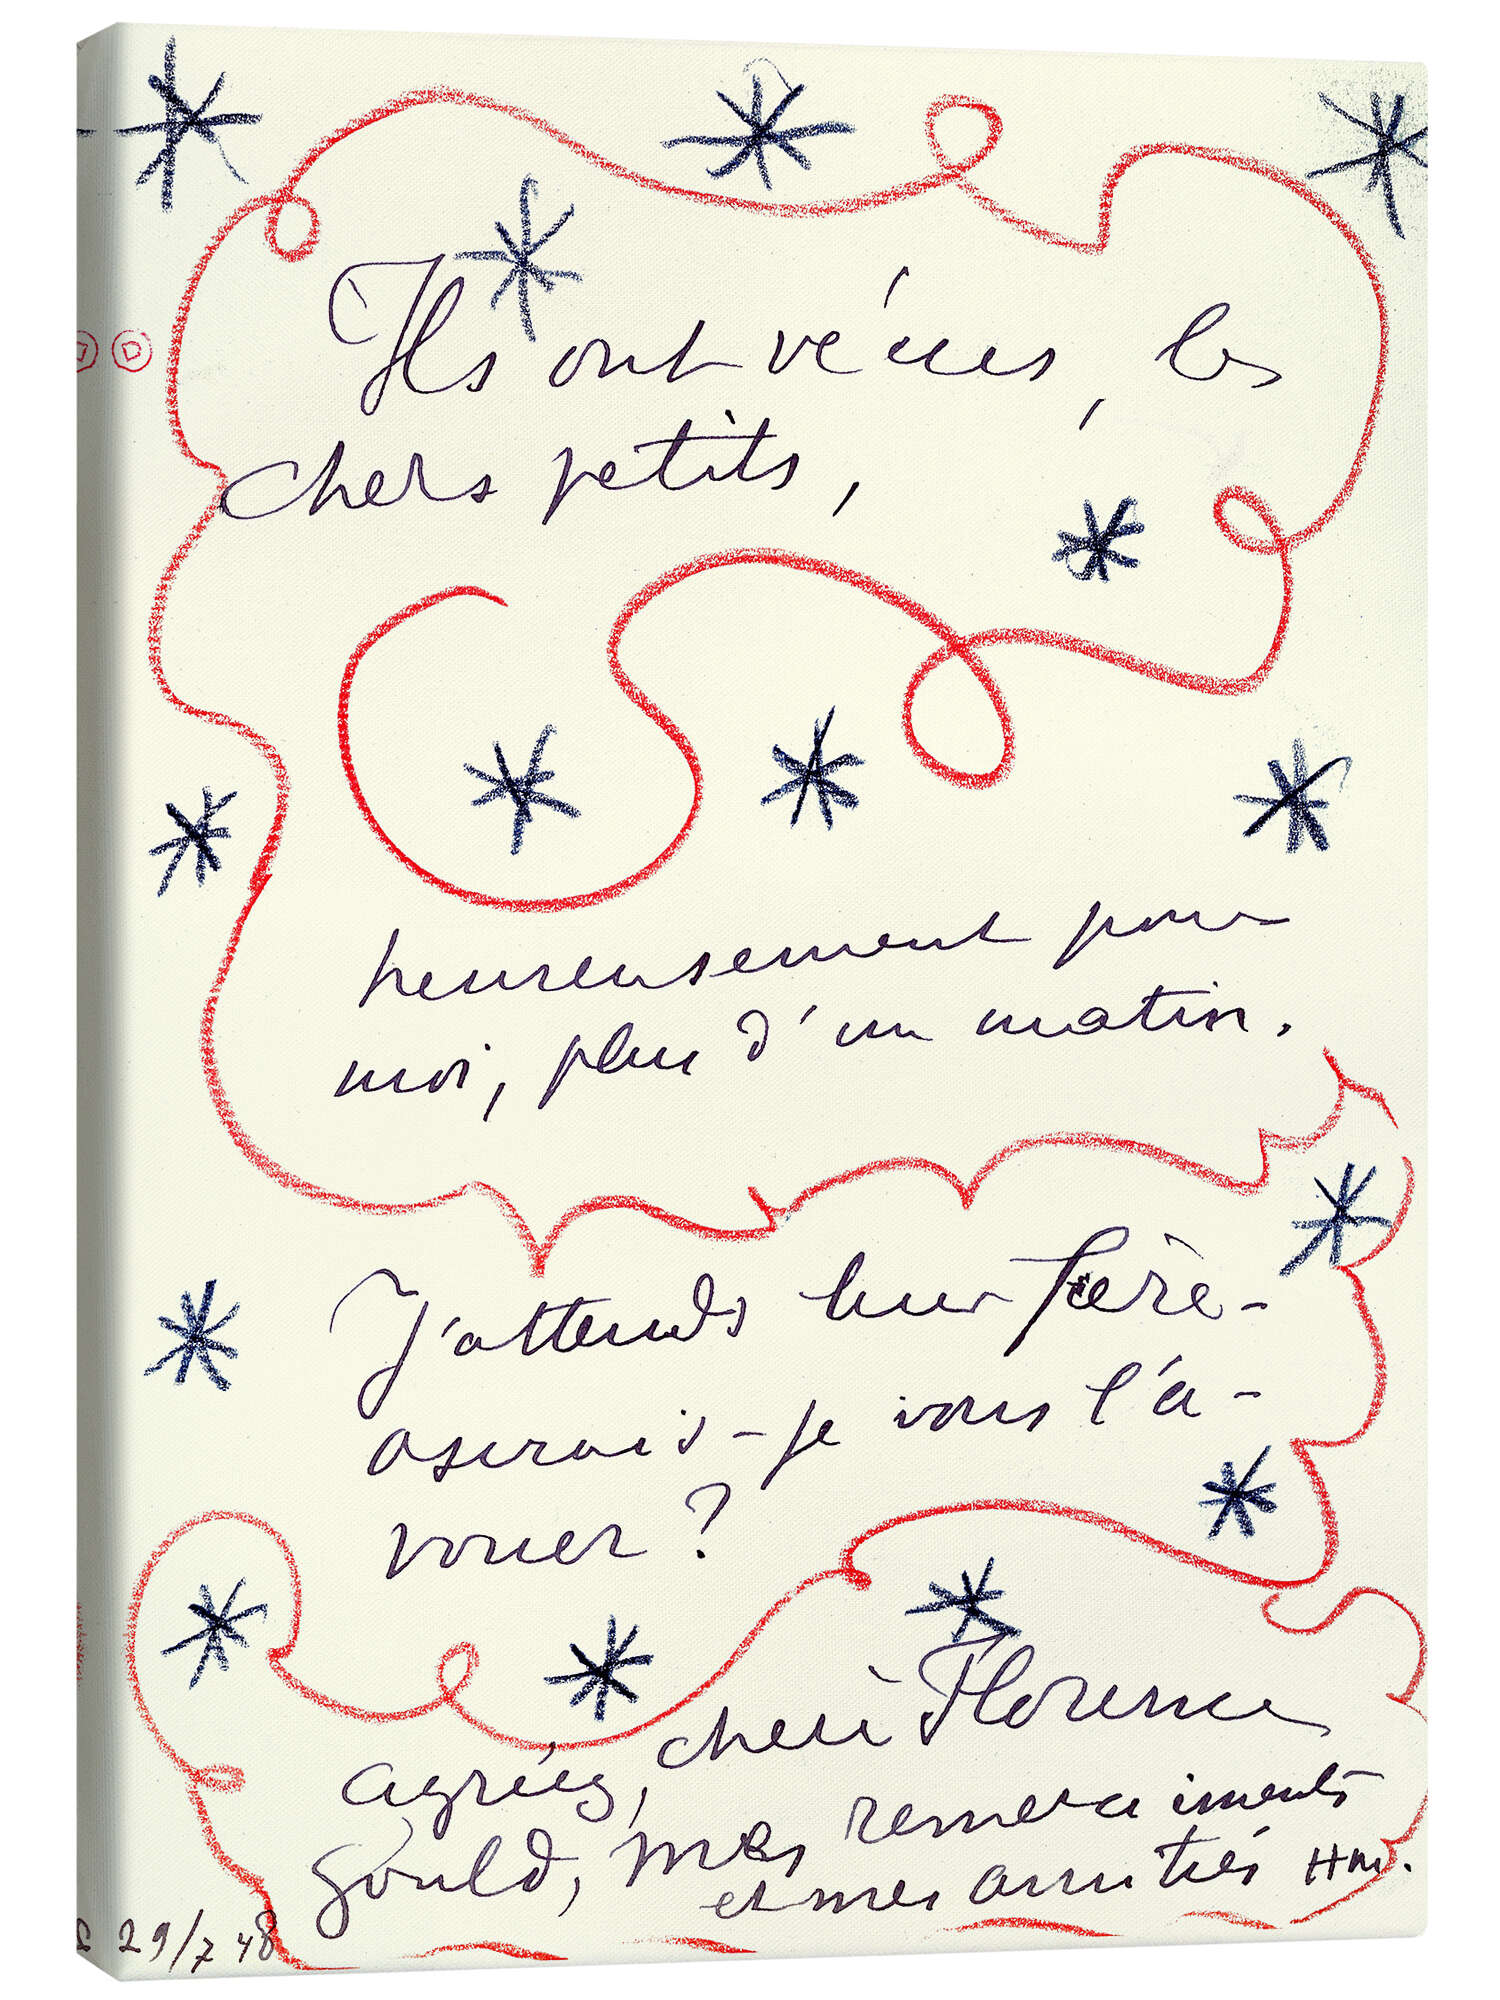 Ils ont vécus, les
chers petits,
heureusement pour
moi, plus d'un matin.
J'attends leur frère-
oserais-je vous l'a-
vouer?
agréez, chère Florence
Gould, mes remerciements
et mes amitiés HM.
29/7 48